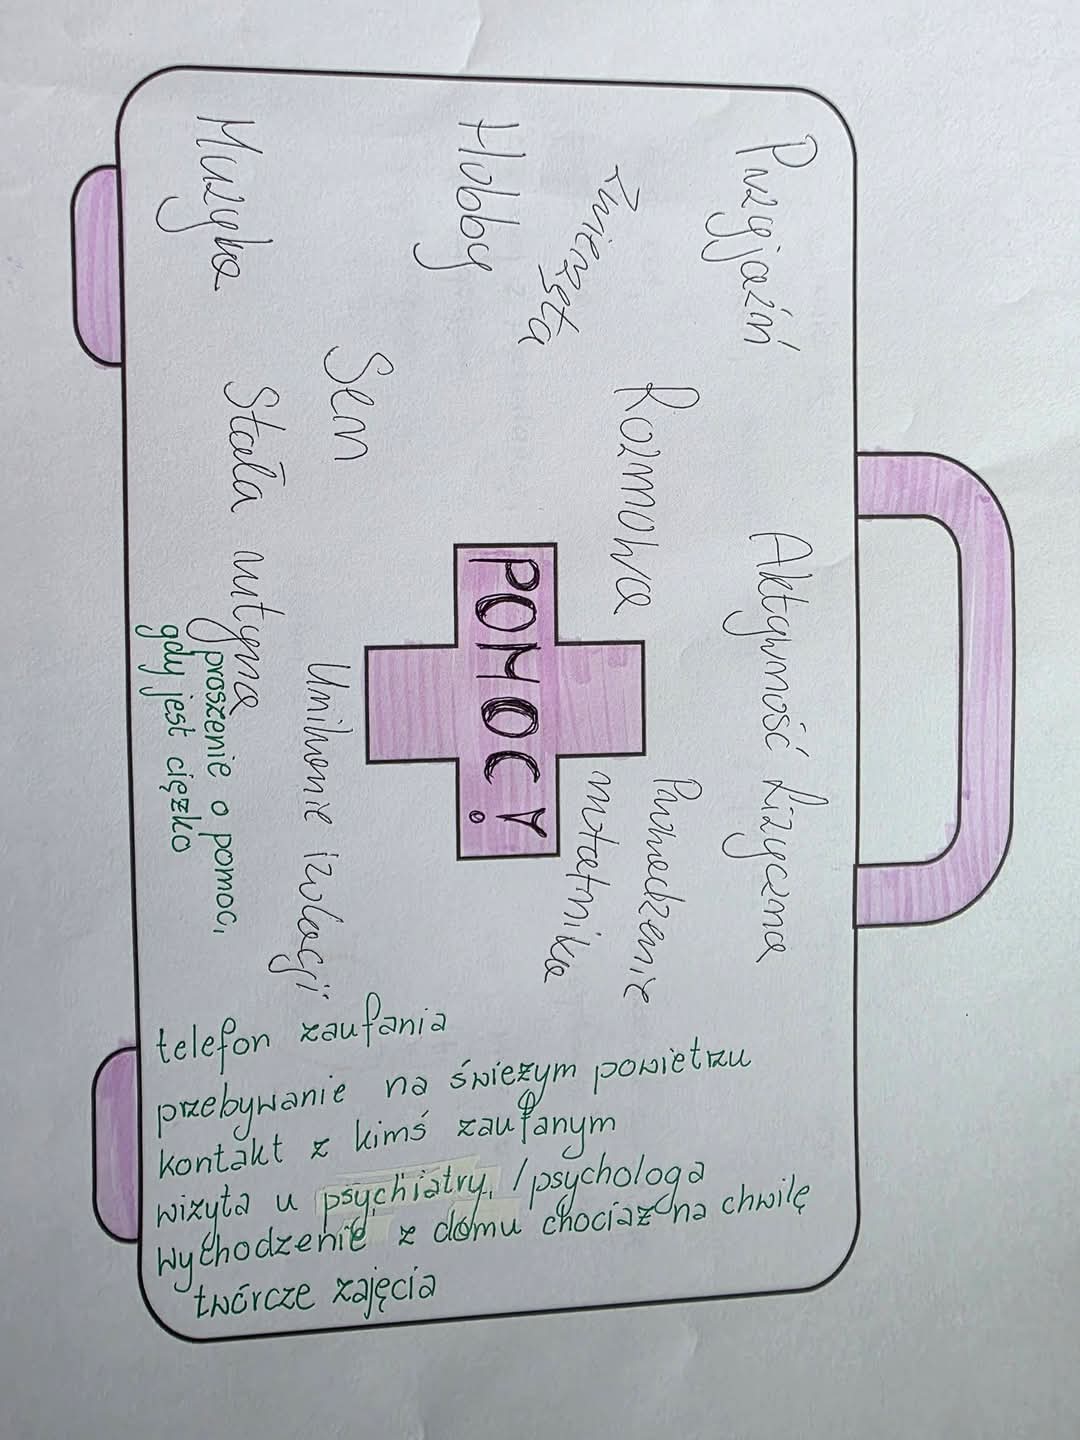 Przyjaźń
Zwierzęta
Hobby
Muzyka
Rozmowa
Sen
Stała rutyna
Aktywność fizyczna
POMOCY
Prowadzenie
notatnika
Unikanie izolacji
proszenie o pomoc,
gdy jest ciężko
telefon zaufania
przebywanie na świeżym powietrzu
kontakt z kimś zaufanym
wizyta u psychiatry, /psychologa
wychodzenie z domu chociaż na chwilę
twórcze zajęcia